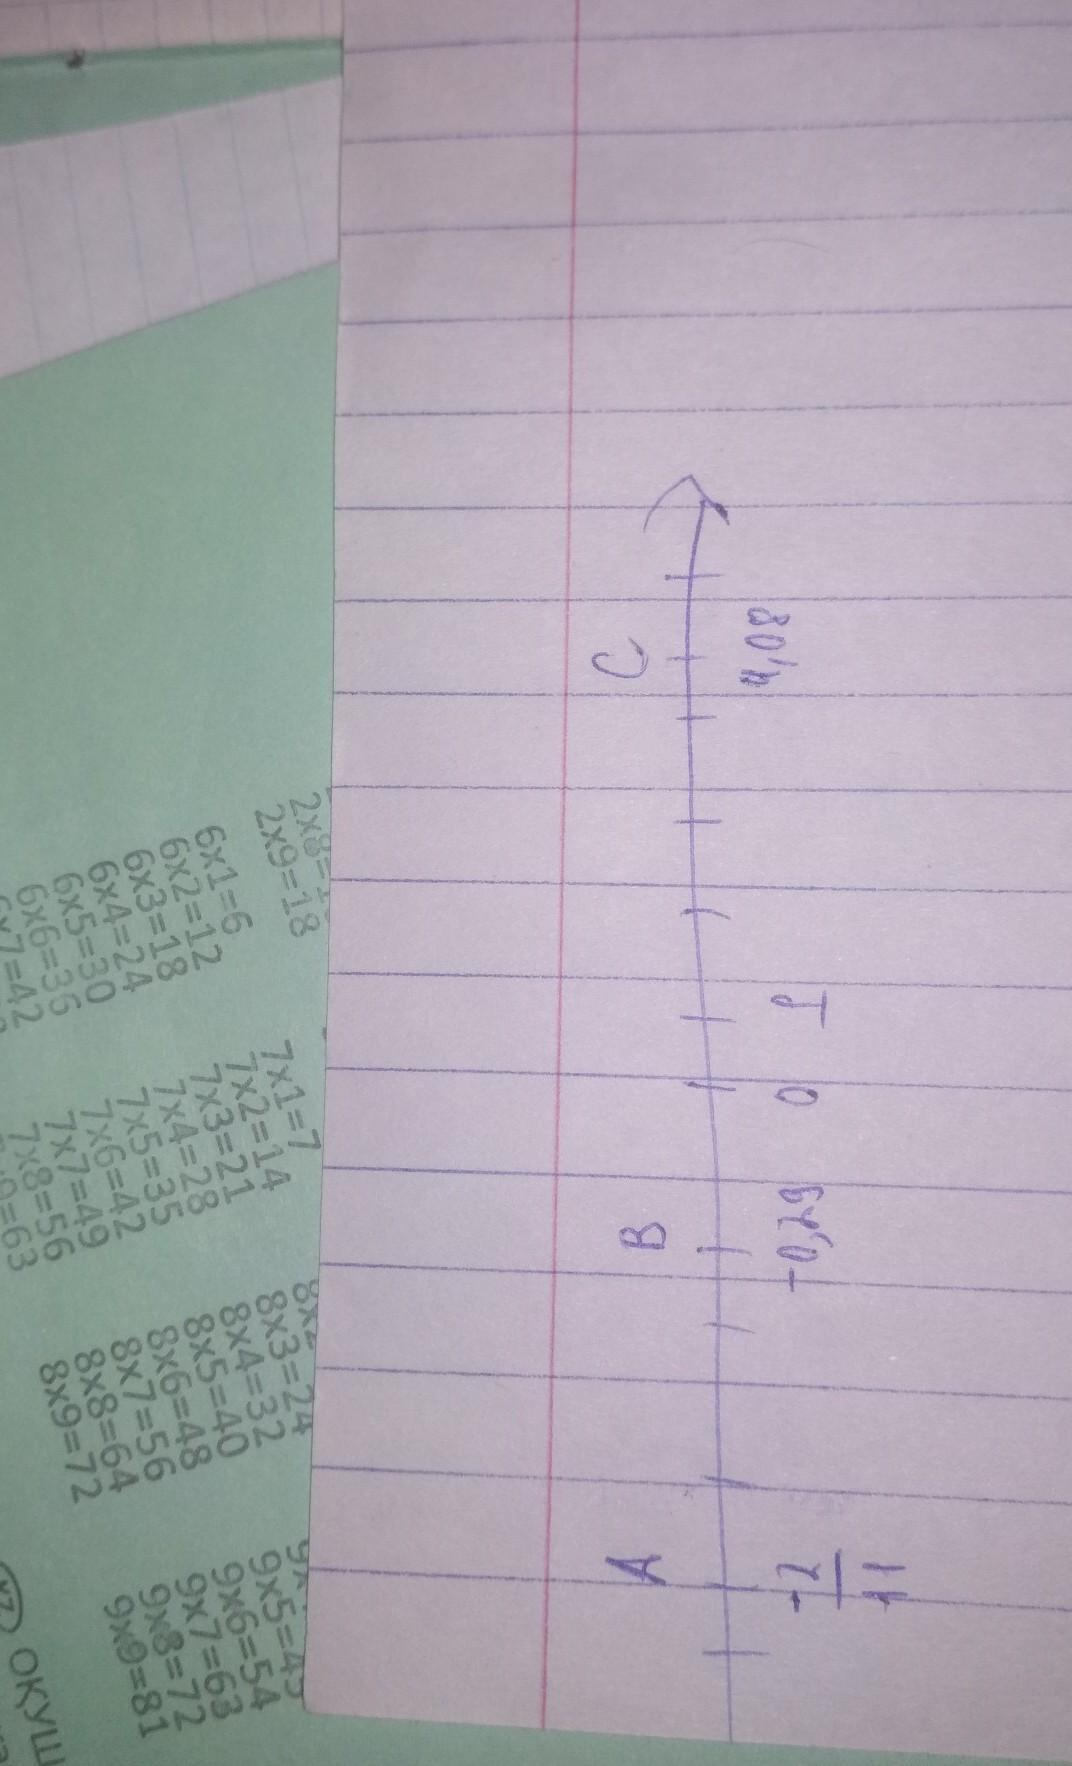 A B C
-2/11 -0,29 0 1 4,08
2x9=18
6x1=6
6x2=12
6x3=18
6x4=24
6x5=30
6x6=36
7x1=7
7x2=14
7x3=21
7x4=28
7x5=35
7x6=42
7x7=49
7x8=56
8x3=24
8x4=32
8x5=40
8x6=48
8x7=56
8x8=64
8x9=72
9x5=45
9x6=54
9x7=63
9x8=72
9x9=81